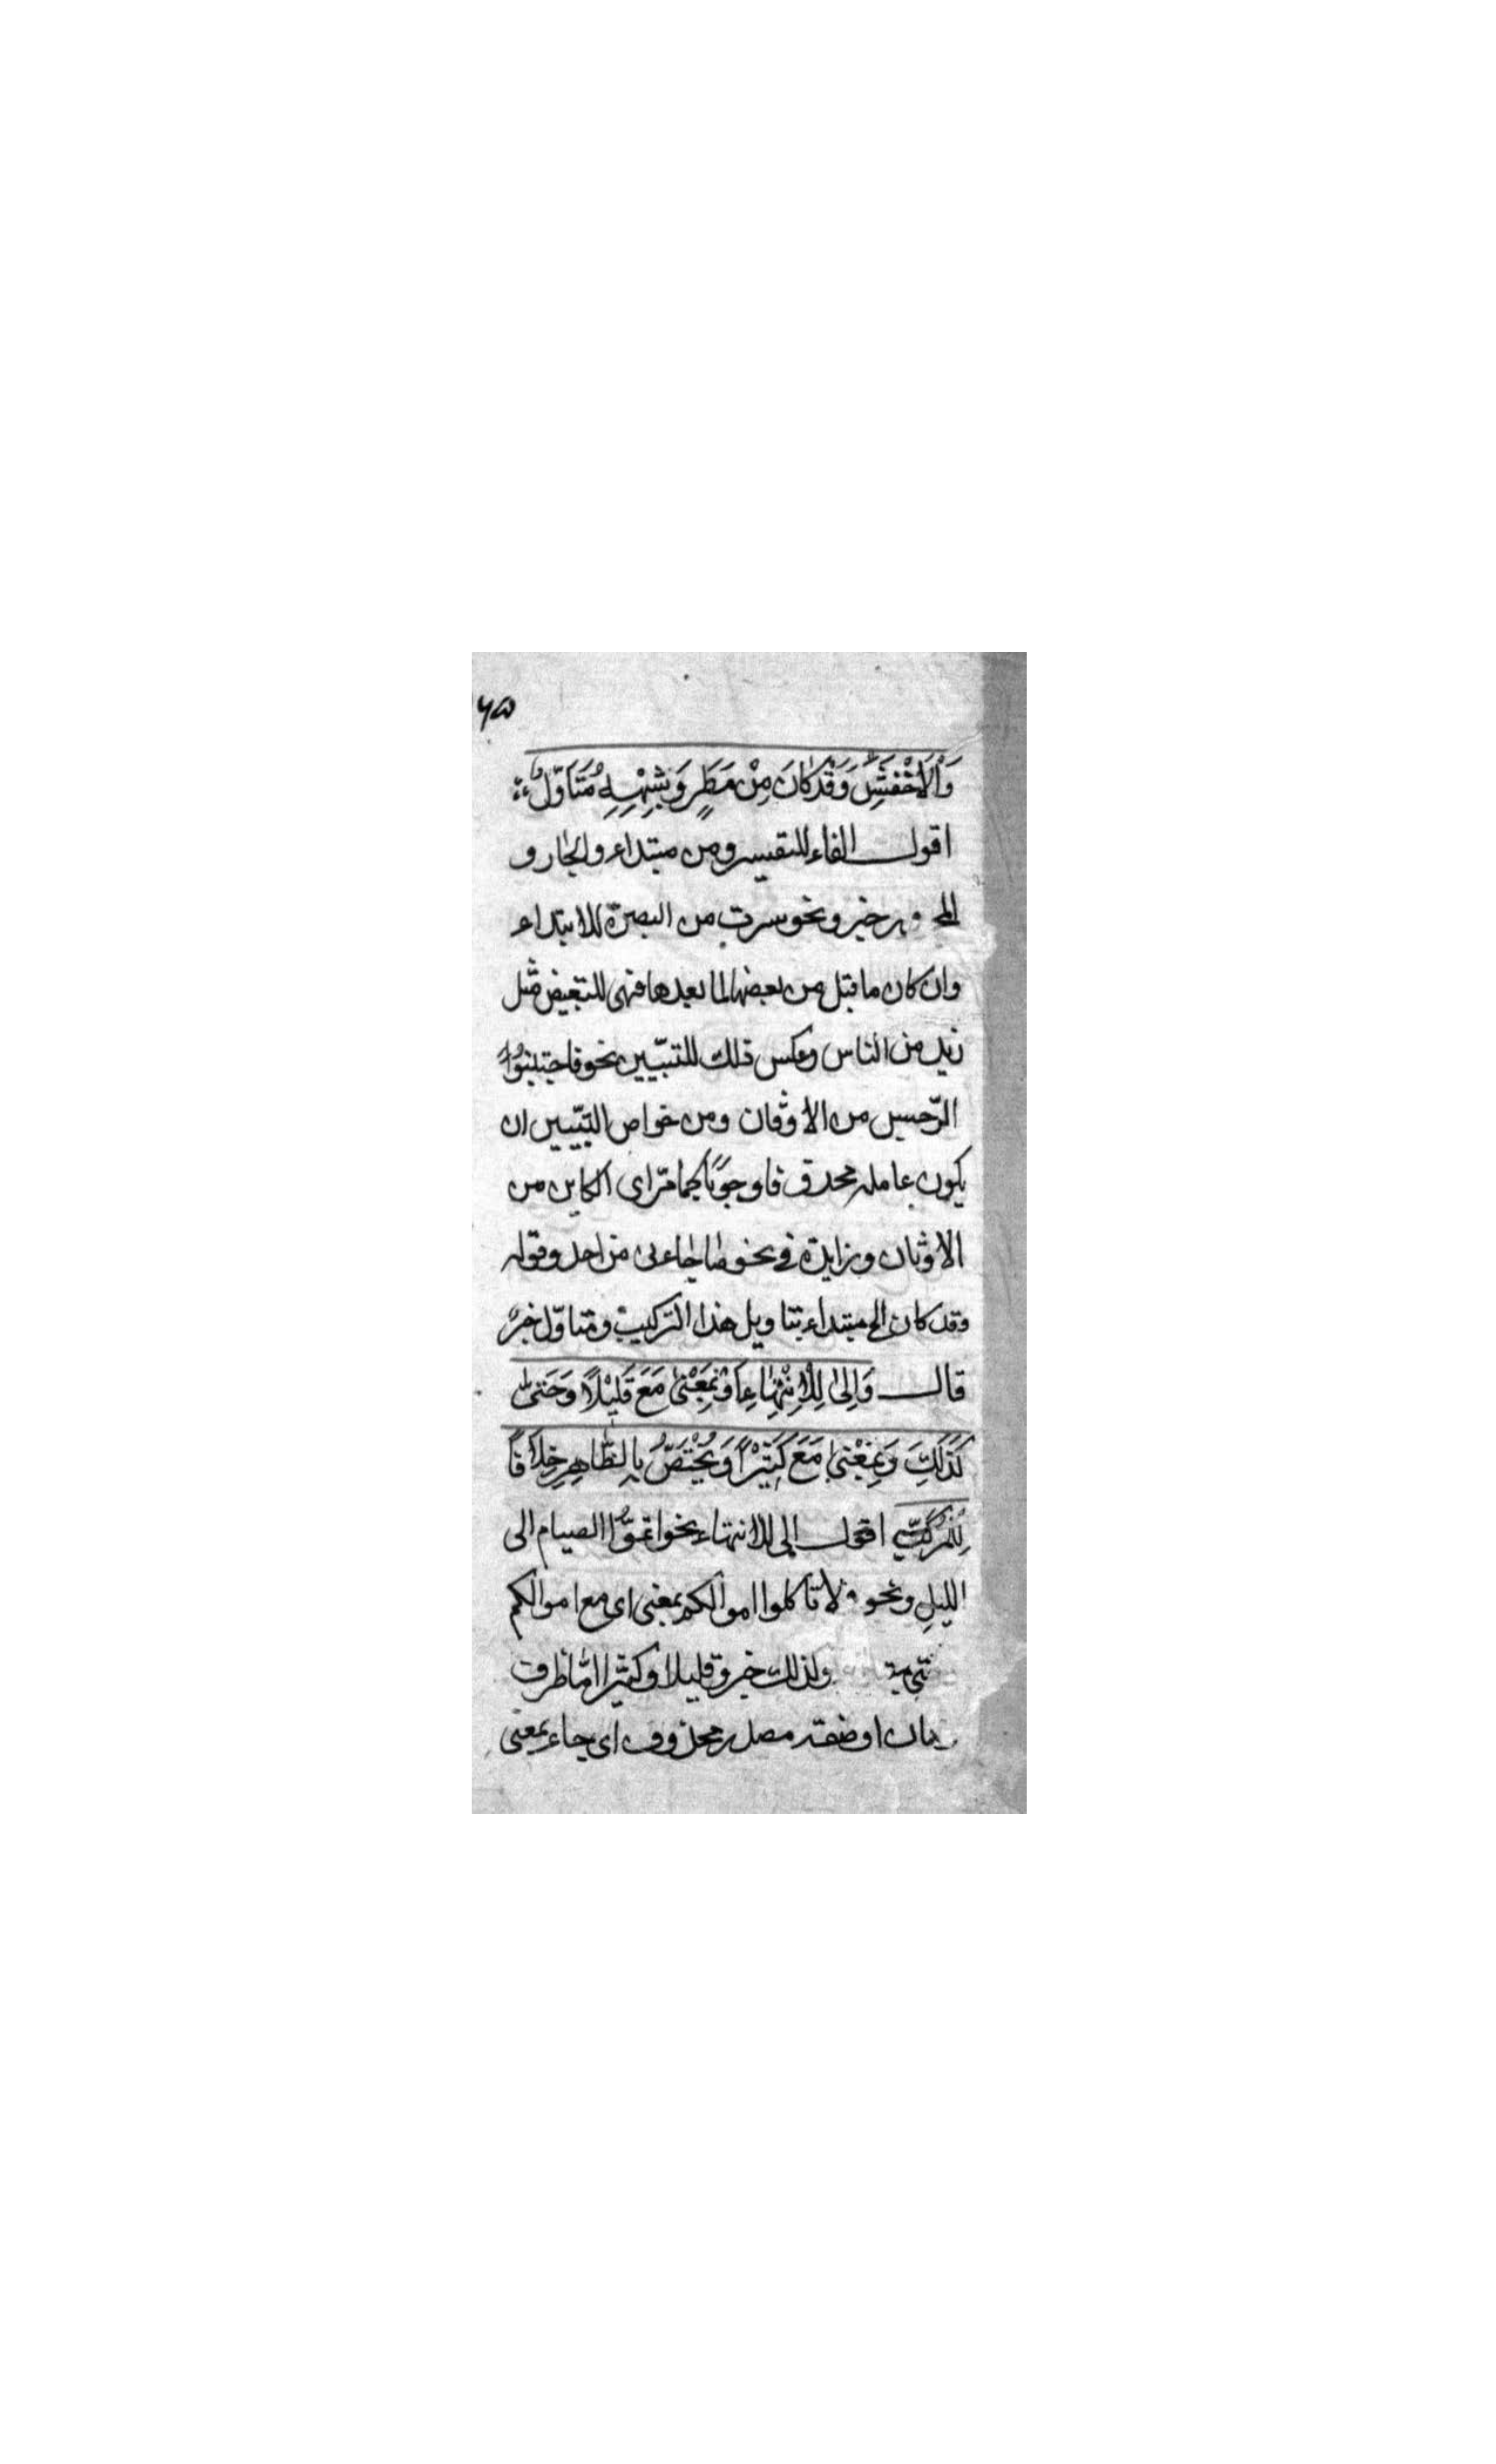 ۶۵
وَالْاَخْفَشِ وَقَدْ كَانَ مِنْ مَطَرٍ وَشِبْهِهِ مُتَاَوَّلٌ
اقول الفاء للتفسير ومن مبتداء والجار و
خبر ونحو سرت من البصرة للابتداء
وان كان ما قبل من بعضها لما بعدها فهى للتبعيض مثل
زيد من الناس وعكس ذلك للتبيّين نحو فاجتنبوا
الرّجس من الاوثان ومن خواص التبيّين ان
يكون عامله محذوفا وجوبًا كما مرّ اى الكاين من
الاوثان وزايدة في نحو ما جاءنى من احد وقوله
وقد كان الخ مبتداء بتاويل هذا التركيب ومتاوّل خبرٌ
قال وَاِلىٰ لِلْاِنْتِهَاءِ وَبِمَعْنىٰ مَعَ قَلِيْلًا وَحَتىّٰ
كَذٰلِكَ وَبِمَعْنىٰ مَعَ كَثِيْرًا وَيُخْتَصُّ بِالظَّاهِرِ خِلَافًا
لِلْمُبَرَّدِ اقول الى للانتهاء نحو اتمّوا الصيام الى
الليلِ ونحو ولا تاكلوا اموالكم بمعنى اى مع اموالكم
وكذلك خبر وقليلا وكثيرا امّا ظرف
زمان او صفة مصدر محذوف اى جاء بمعنى